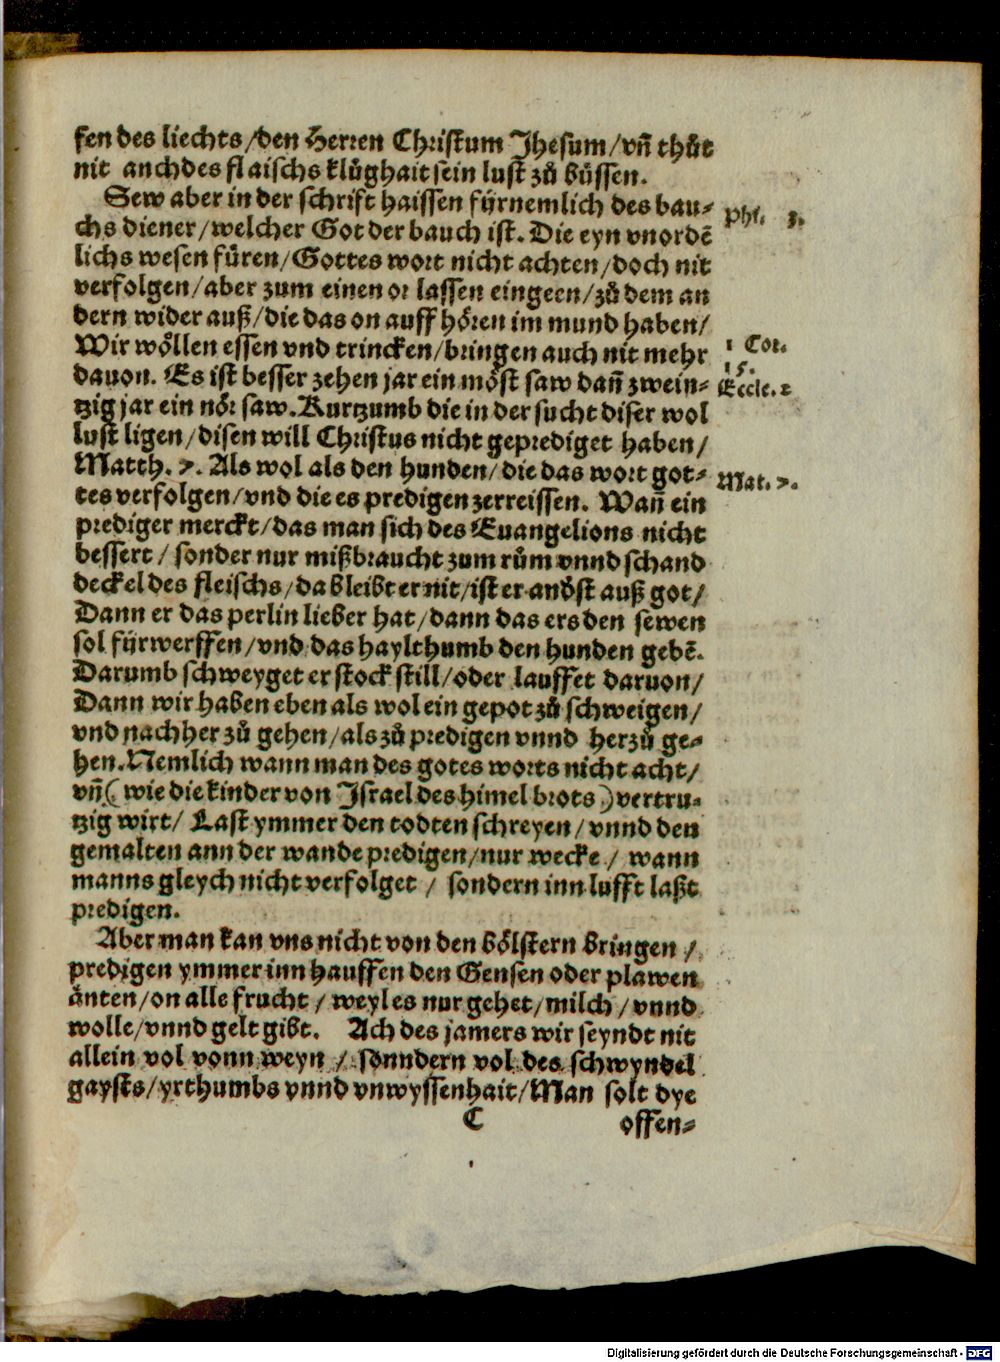 fen des liechts/den Herren Christum Jhesum/vn̄ thůt
nit anch des flaischs klůghait sein lust zů bůssen.
Sew aber in der schrift haissen fürnemlich des bau⸗
chs diener/welcher Got der bauch ist. Die eyn vnordē
lichs wesen füren/Gottes wort nicht achten/doch nit
verfolgen/aber zum einen or lassen eingeen/zů dem an
dern wider auß/die das on auff hören im mund haben/
Wir wöllen essen vnd trincken/bringen auch nit mehr
dauon. Es ist besser zehen jar ein möst saw dan̄ zwein⸗
tzig jar ein nör saw. Kurtzumb die in der sucht diser wol
lust ligen/disen will Christus nicht geprediget haben/
Matth. 7. Als wol als den hunden/die das wort got⸗
tes verfolgen/vnd die es predigen zerreissen. Wan̄ ein
prediger merckt/das man sich des Euangelions nicht
bessert/sonder nur mißbraucht zum rům vnnd schand
deckel des fleischs/da bleibt er nit/ist er anðst auß got/
Dann er das perlin lieber hat/dann das ers den sewen
sol fürwerffen/vnd das haylthumb den hunden gebē.
Darumb schweyget er stock still/oder lauffet daruon/
Dann wir haben eben als wol ein gepot zů schweigen/
vnd nachher zů gehen/als zů predigen vnnd herzů ge⸗
hen. Nemlich wann man des gotes worts nicht acht/
vn̄ (wie die kinder von Israel des himel brots) vertru⸗
tzig wirt/ Last ymmer den todten schreyen/vnnd den
gemalten ann der wande predigen/nur wecke/ wann
manns gleych nicht verfolget/ sondern inn lufft laßt
predigen.
Aber man kan vns nicht von den bölstern bringen/
predigen ymmer inn hauffen den Gensen oder plawen
änten/on alle frucht/weyl es nur gehet/milch/vnnd
wolle/vnnd gelt gibt. Ach des jamers wir seyndt nit
allein vol vonn weyn/sonndern vol des schwyndel
gaysts/yrthumbs vnnd vnwyssenhait/Man solt dye
C offen⸗
Phi. 3.
1 Cor.
15.
Eccle. 2
Mat. 7.
Digitalisierung gefördert durch die Deutsche Forschungsgemeinschaft - DFG